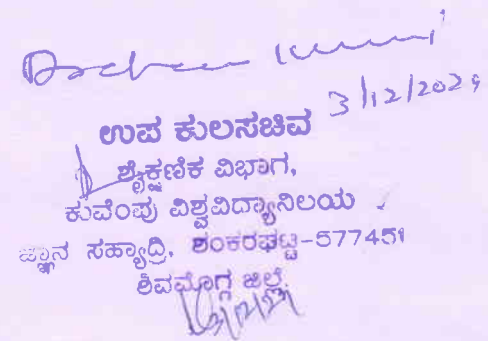 3/12/2024
ಉಪ ಕುಲಸಚಿವ
ಶೈಕ್ಷಣಿಕ ವಿಭಾಗ,
ಕುವೆಂಪು ವಿಶ್ವವಿದ್ಯಾನಿಲಯ
ಜ್ಞಾನ ಸಹ್ಯಾದ್ರಿ, ಶಂಕರಘಟ್ಟ-577451
ಶಿವಮೊಗ್ಗ ಜಿಲ್ಲೆ.